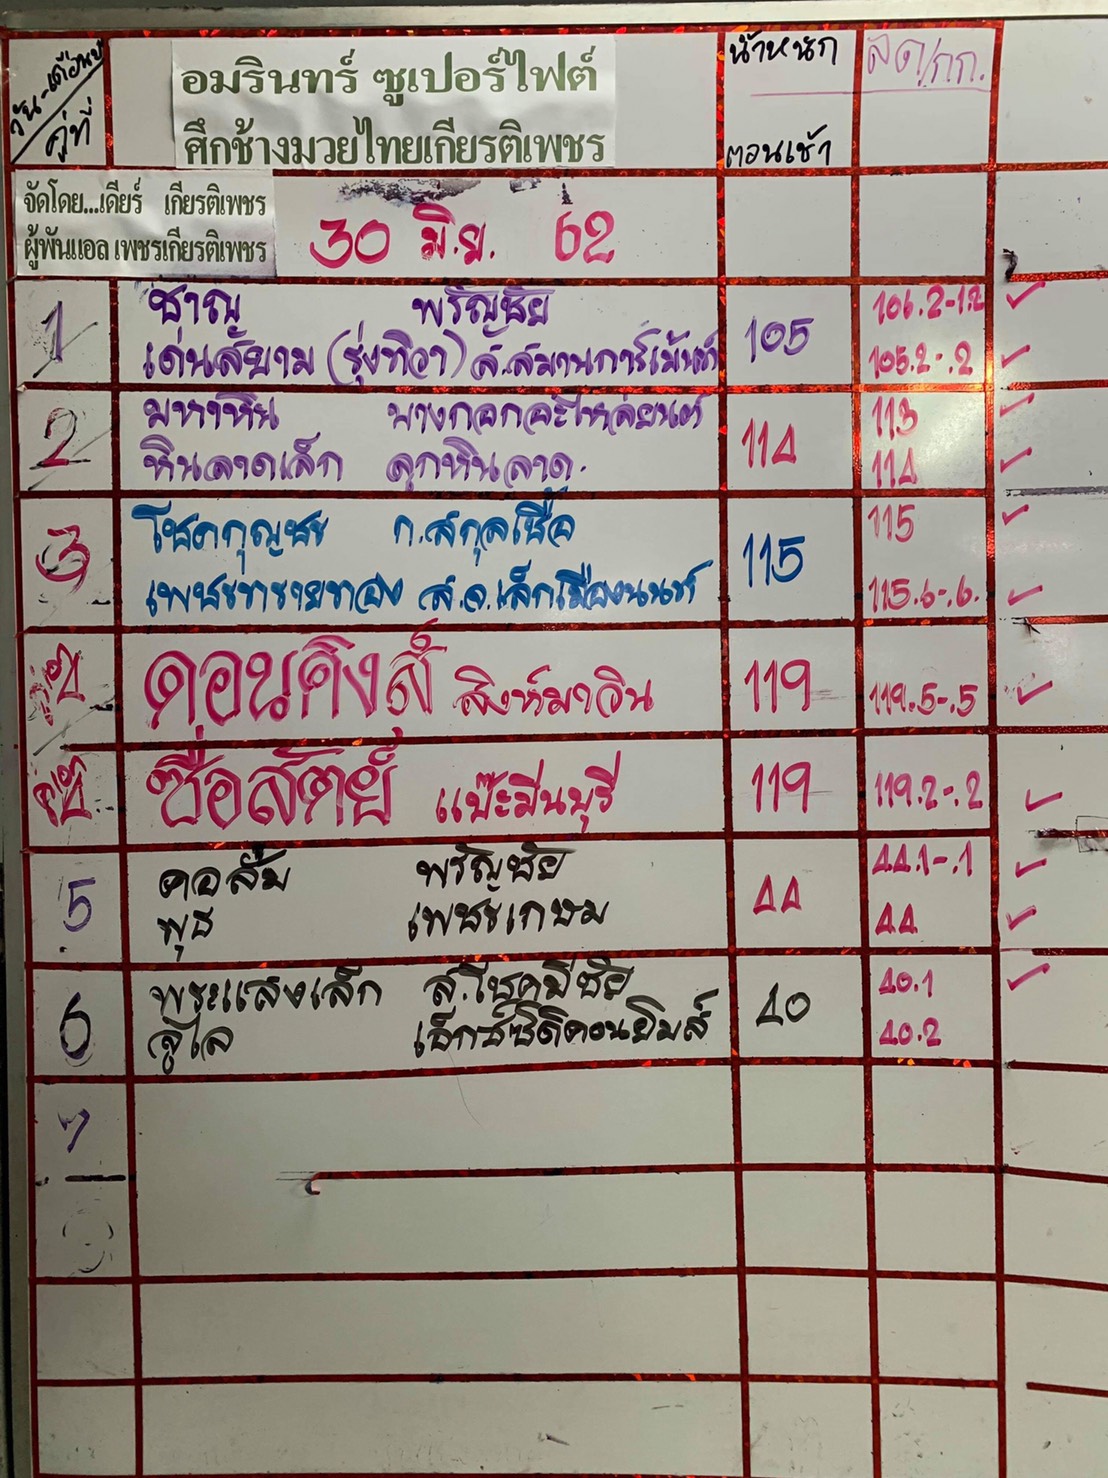 วัน-เดือน-ปี
คู่ที่
อมรินทร์ ซูเปอร์ไฟต์
ศึกช้างมวยไทยเกียรติเพชร
น้ำหนัก
ตอนเช้า
ลด/กก.
จัดโดย...เดียร์ เกียรติเพชร
ผู้พันแอล เพชรเกียรติเพชร
30 มิ.ย. 62
1
ชาญ พรัญชัย 106.2-1.2
เด่นสยาม (รุ่งทิวา) 105 105.2-.2
2
มหาหิน 113
หินลาดเล็ก ลูกหินลาด. 114 114
3
โชคกุญชร ก.สกุลเชื้อ 115 115
เพชรทรายทอง ส.จ.เล็กเมืองนนท์ 115.6-.6.
ดอนคิงส์ สิงห์มาวิน 119 119.5-.5
ซื่อสัตย์ แป๊ะมีนบุรี 119 119.2-.2
5
คอส้ม พรัญชัย 44.1-.1
พุธ เพชรเกษม 44 44
6
พระแสงเล็ก ส.โชคมีชัย 40 40.1
จูไล เล็กซ์ซิตี้คอนยิมส์ 40.2
7